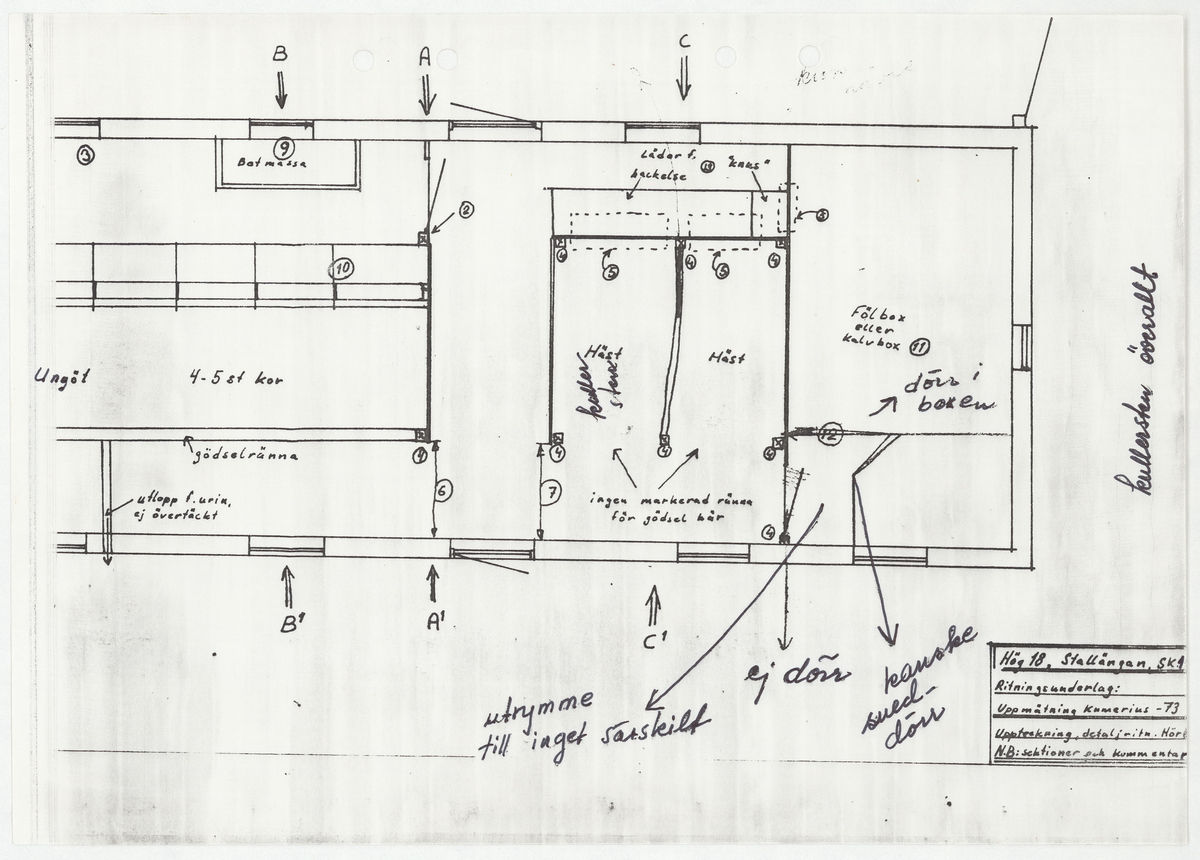 B
A
C
3
9
Botmassa
Lådor f. 12 "knus"
hackelse
2
5
4
4
4
5
5
10
Fölbox
eller
kalvbox 11
Häst
Häst
kuller
sten
Ungöt
4-5 st kor
dörr i
boxen
kullersten överallt
4
gödselränna
4
4
4
12
6
7
utlopp f. urin,
ej övertäckt
ingen markerad ränna
för gödsel här
4
B'
A'
C'
ej dörr
kanske
sned-
dörr
utrymme
till inget särskilt
Hög 18, Stallängan, SKÅ
Ritningsunderlag:
Uppmätning Kumerius -73
Uppteckning, detaljritn. Hörl
N.B: sektioner och kommentar